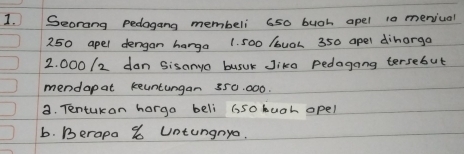 1. Seorang pedagang membeli 650 buah apel ia menjual
250 apel dengan harga 1.500 /buah 350 apel diharga
2.000/2 dan sisanya busuk Jika pedagang tersebut
mendapat keuntungan 350.000.
a. Tentukan harga beli 650 buah apel
b. Berapa % Untungnya.